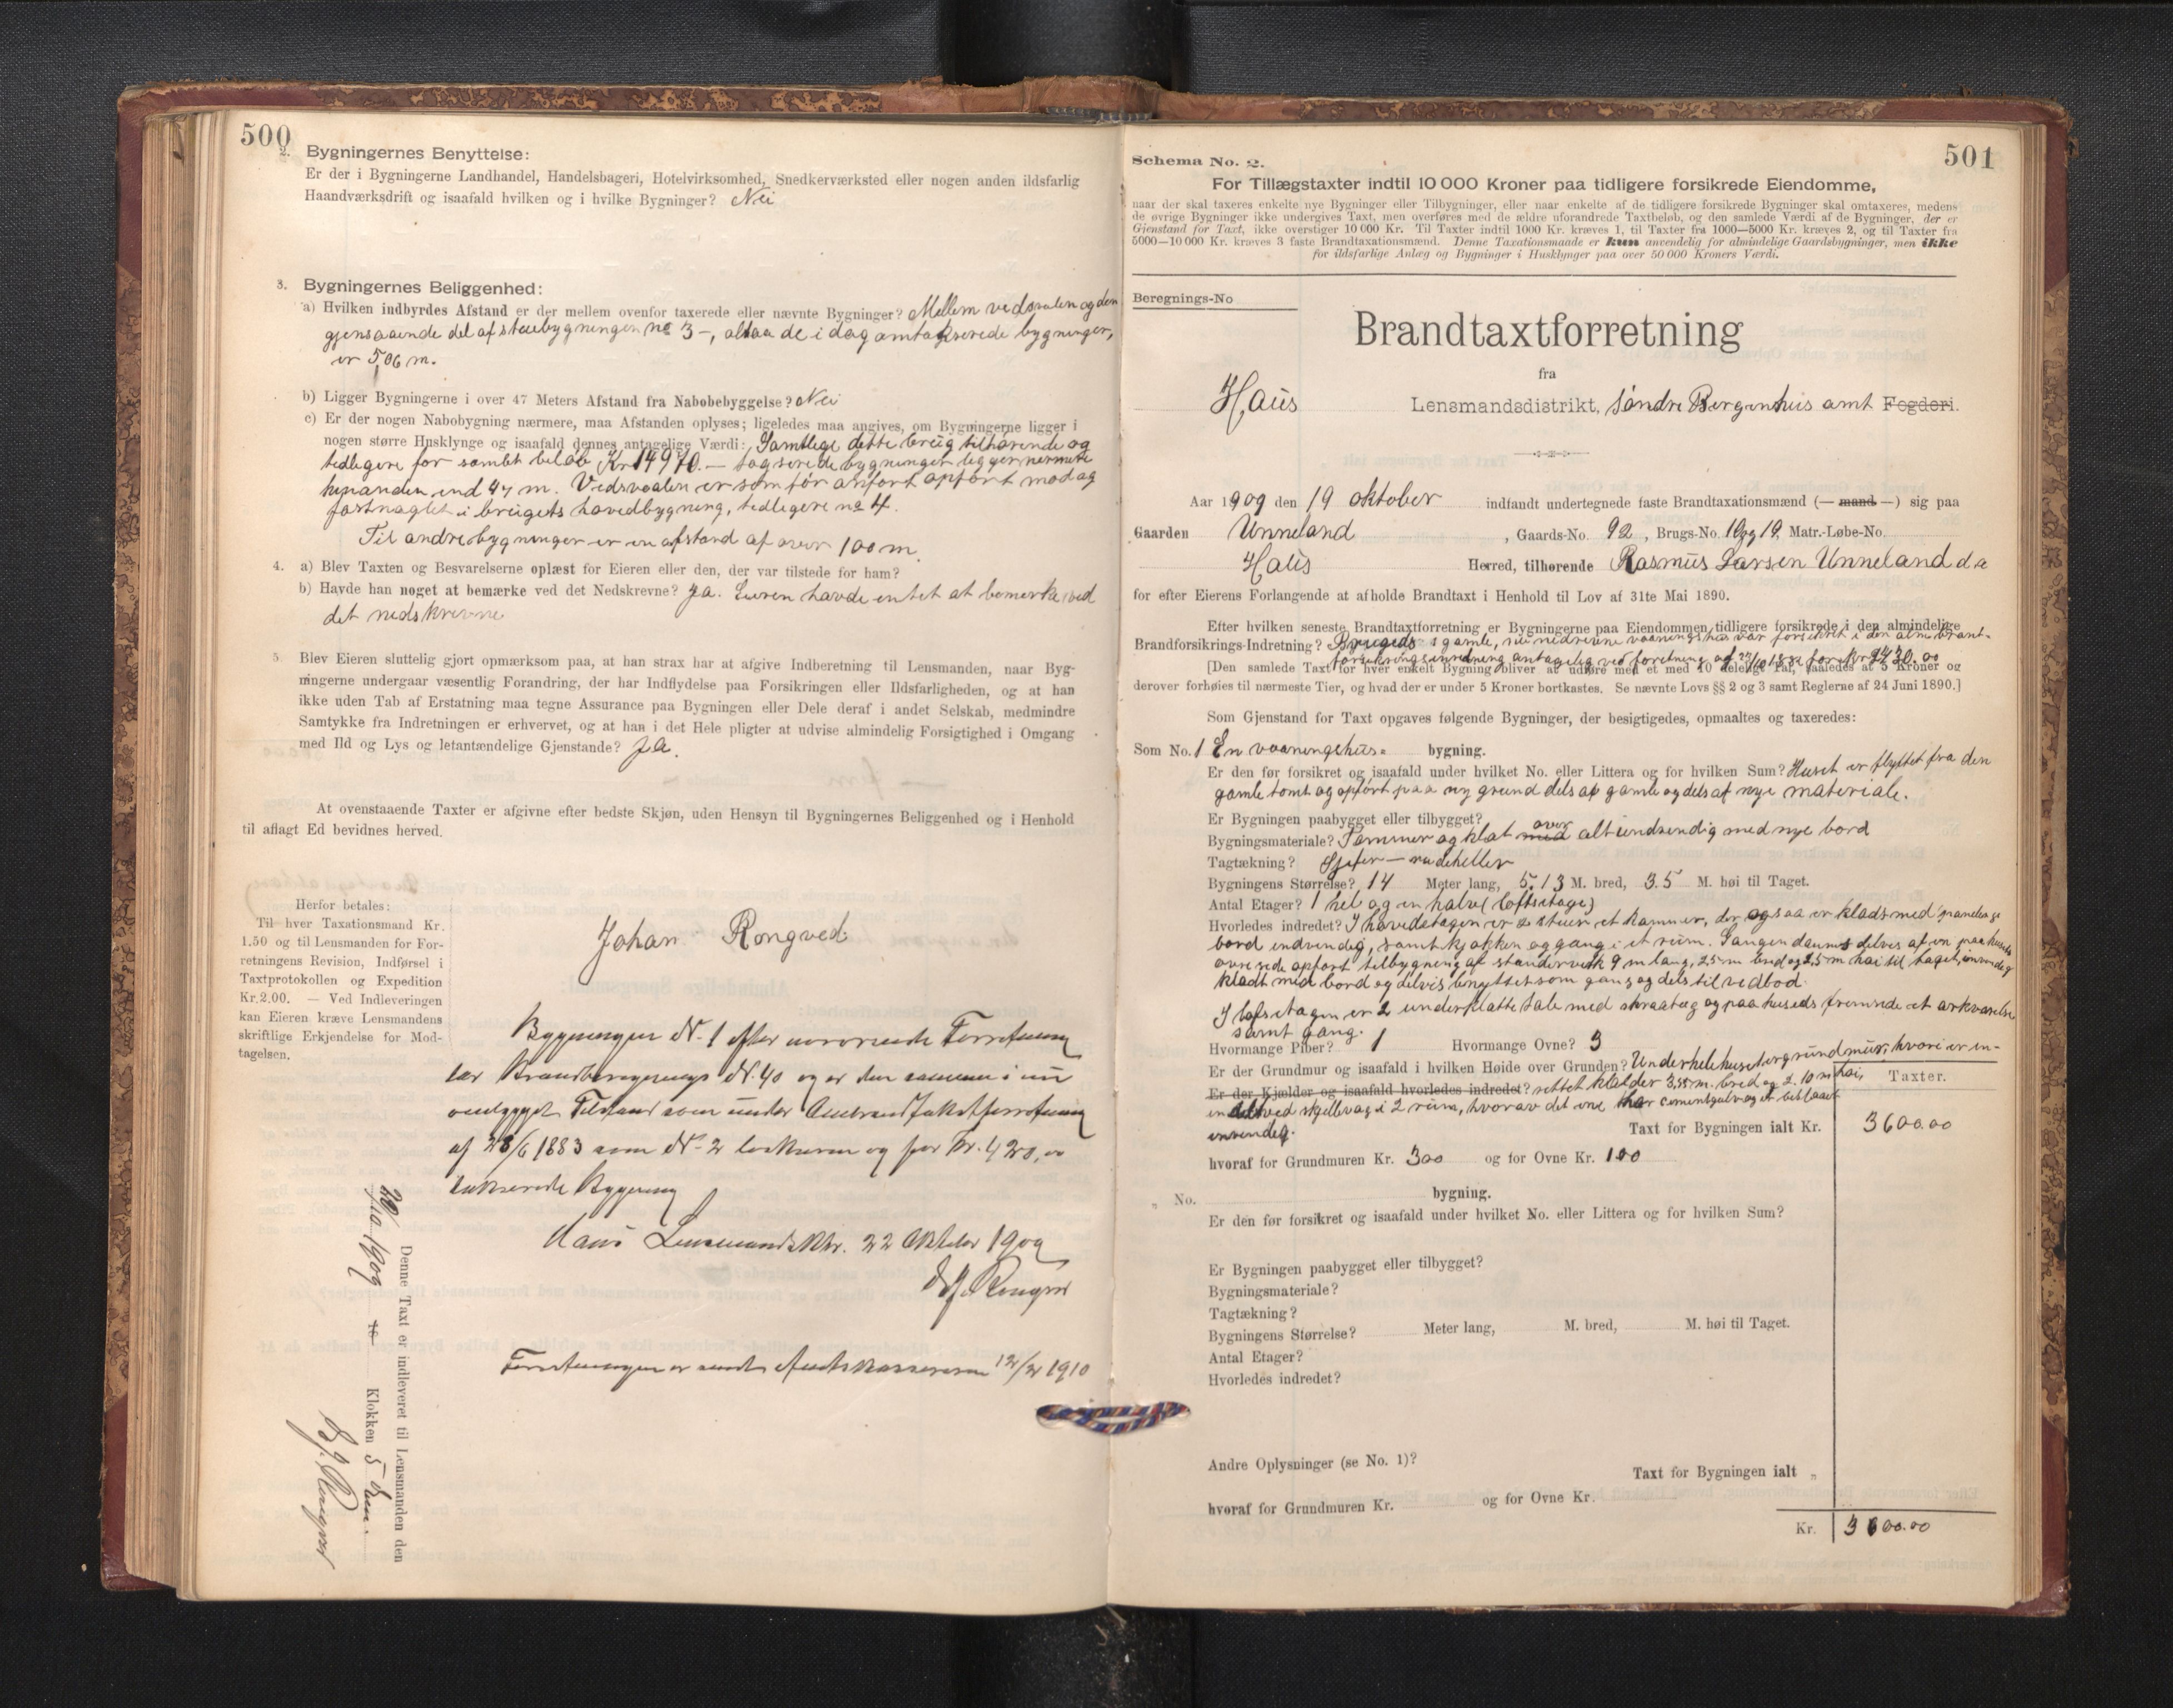 500
2. Bygningernes Benyttelse:
Er der i Bygningerne Landhandel, Handelsbageri, Hotelvirksomhed, Snedkerværksted eller nogen anden ildsfarlig
Haandværksdrift og isaafald hvilken og i hvilke Bygninger? Nei
3. Bygningernes Beliggenhed:
a) Hvilken indbyrdes Afstand er der mellem ovenfor taxerede eller nævnte Bygninger? Mellem vedsvalen og den
del af stuebygningen no 3 –, altsaa de i dag omtakserede bygninger,
er 5,06 m.
b) Ligger Bygningerne i over 47 Meters Afstand fra Nabobebyggelse? Nei
c) Er der nogen Nabobygning nærmere, maa Afstanden oplyses; ligeledes maa angives, om Bygningerne ligger i
nogen større Husklynge og isaafald dennes antagelige Værdi: Samtlege dette brug tilhørende og
tedligere for samlet beløb Kr 14970.– tagserede bygninger ligger nermere
hinanden end 47 m. Vedsvaalen er som før anført opført mod og
fastnaglet i brugets hovedbygning, tedligere no 4.
Til andre bygninger er en afstand af over 100 m.
4. a) Blev Taxten og Besvarelserne oplæst for Eieren eller den, der var tilstede for ham?
b) Havde han noget at bemærke ved det Nedskrevne? Ja. Eieren havde entet at bemerke ved
det nedskrevne
5. Blev Eieren sluttelig gjort opmærksom paa, at han strax har at afgive Indberetning til Lensmanden, naar Byg-
ningerne undergaar væsentlig Forandring, der har Indflydelse paa Forsikringen eller Ildsfarligheden, og at han
ikke uden Tab af Erstatning maa tegne Assurance paa Bygningen eller Dele deraf i andet Selskab, medmindre
Samtykke fra Indretningen er erhvervet, og at han i det Hele pligter at udvise almindelig Forsigtighed i Omgang
med Ild og Lys og letantændelige Gjenstande? Ja.
At ovenstaaende Taxter er afgivne efter bedste Skjøn, uden Hensyn til Bygningernes Beliggenhed og i Henhold
til aflagt Ed bevidnes herved.
Herfor betales:
Til hver Taxationsmand Kr.
1.50 og til Lensmanden for For-
retningens Revision, Indførsel i
Taxtprotokollen og Expedition
Kr. 2.00. — Ved Indleveringen
kan Eieren kræve Lensmandens
skriftlige Erkjendelse for Mod-
tagelsen.
Johan Rongved
Bygningen No. 1 efter nærværende Forretning
har Brandberegnings No. 40 og er den samme i
Tilstand som under Ombrandtakstforretning
af 28/6 1883 som No. 2 og for Kr. 420,00
takserede Bygning
Haus Lensmandsktr. 22 Oktober 1909
Forretningen er sendt Amtskassereren 12/2 1910
Denne Taxt er indleveret til Lensmanden den
20/10 1909 Klokken 5 Em.
501
Schema No. 2.
For Tillægstaxter indtil 10 000 Kroner paa tidligere forsikrede Eiendomme,
naar der skal taxeres enkelte nye Bygninger eller Tilbygninger, eller naar enkelte af de tidligere forsikrede Bygninger skal omtaxeres, medens
de øvrige Bygninger ikke undergives Taxt, men overføres med de ældre uforandrede Taxtbeløb, og den samlede Værdi af de Bygninger, der er
Gjenstand for Taxt, ikke overstiger 10 000 Kr. Til Taxter indtil 1000 Kr. kræves 1, til Taxter fra 1000—5000 Kr. kræves 2, og til Taxter fra
5000—10 000 Kr. kræves 3 faste Brandtaxationsmænd. Denne Taxationsmaade er kun anvendelig for almindelige Gaardsbygninger, men ikke
for ildsfarlige Anlæg og Bygninger i Husklynger paa over 50 000 Kroners Værdi.
Beregnings-No
Brandtaxtforretning
fra
Haus Lensmandsdistrikt, Søndre Bergenhus amt Fogderi.
Aar 1909 den 19 oktober indfandt undertegnede faste Brandtaxationsmænd (— mand —) sig paa
Gaarden Unneland, Gaards-No. 92, Brugs-No. 10 og 19. Matr.-Løbe-No.
Haus Herred, tilhørende Rasmus Larsen Unneland da
for efter Eierens Forlangende at afholde Brandtaxt i Henhold til Lov af 31te Mai 1890.
Efter hvilken seneste Brandtaxtforretning er Bygningerne paa Eiendommen tidligere forsikrede i den almindelige
Brandforsikrings-Indretning? Brugeds gamle, nu nedrevne vaaningshus var forsikret i den alm. brant-
forsikringsinredning antagelig ved foretning af 27/10 1882 for Kr 2430.00
[Den samlede Taxt for hver enkelt Bygning bliver at udføre med et med 10 deleligt Tal, saaledes at 5 Kroner og
derover forhøies til nærmeste Tier, og hvad der er under 5 Kroner bortkastes. Se nævnte Lovs §§ 2 og 3 samt Reglerne af 24 Juni 1890.]
Som Gjenstand for Taxt opgaves følgende Bygninger, der besigtigedes, opmaaltes og taxeredes:
Som No. 1 En vaaningshus= bygning.
Er den før forsikret og isaafald under hvilket No. eller Littera og for hvilken Sum? Huset er flyttet fra den
gamle tomt og opført paa ny grund dels af gamle og dels af nye materiale.
Er Bygningen paabygget eller tilbygget?
Bygningsmateriale? Tømmer og klat med over alt undvendig med nye bord
Tagtækning? Sjifer – rudeheller
Bygningens Størrelse? 14 Meter lang, 5.13 M. bred, 3.5 M. høi til Taget.
Antal Etager? 1 hel og en halv (loftsetage)
Hvorledes indredet? I hovedetagen er 2 stuer et kammer, der ogsaa er klads med panelings
bord endvendig, samt kjøkken og gang i et rum. Gangen dannes delvis af en paa husets
øvre side opført telbygning af standerverk 9 m lang, 2,5 m bred og 2,5 m høi til taget, invendig
kladt med bord og delvis benyttet som gang og dels til vedbod.
I loftsetagen er 2 underklatte tale med skraatag og paa huseds fremside et arkværelse
samt gang.
Hvormange Piber? 1 Hvormange Ovne? 3
Er der Grundmur og isaafald i hvilken Høide over Grunden? Under hele huset er grundmur, hvori er in-
Er der Kjælder og isaafald hvorledes indredet? rettet kjælder 3,55 m. bred og 2.10 m høi,
inddelt ved skjellevag i 2 rum, hvorav det ene har cementgulv og er beslaaet
invendig.
Taxter.
Taxt for Bygningen ialt Kr. 3600.00
hvoraf for Grundmuren Kr. 300 og for Ovne Kr. 100
„ No. bygning.
Er den før forsikret og isaafald under hvilket No. eller Littera og for hvilken Sum?
Er Bygningen paabygget eller tilbygget?
Bygningsmateriale?
Tagtækning?
Bygningens Størrelse? Meter lang, M. bred, M. høi til Taget.
Antal Etager?
Hvorledes indredet?
Andre Oplysninger (se No. 1)?
Taxt for Bygningen ialt „
hvoraf for Grundmuren Kr. og for Ovne Kr.
Kr. 3600.00